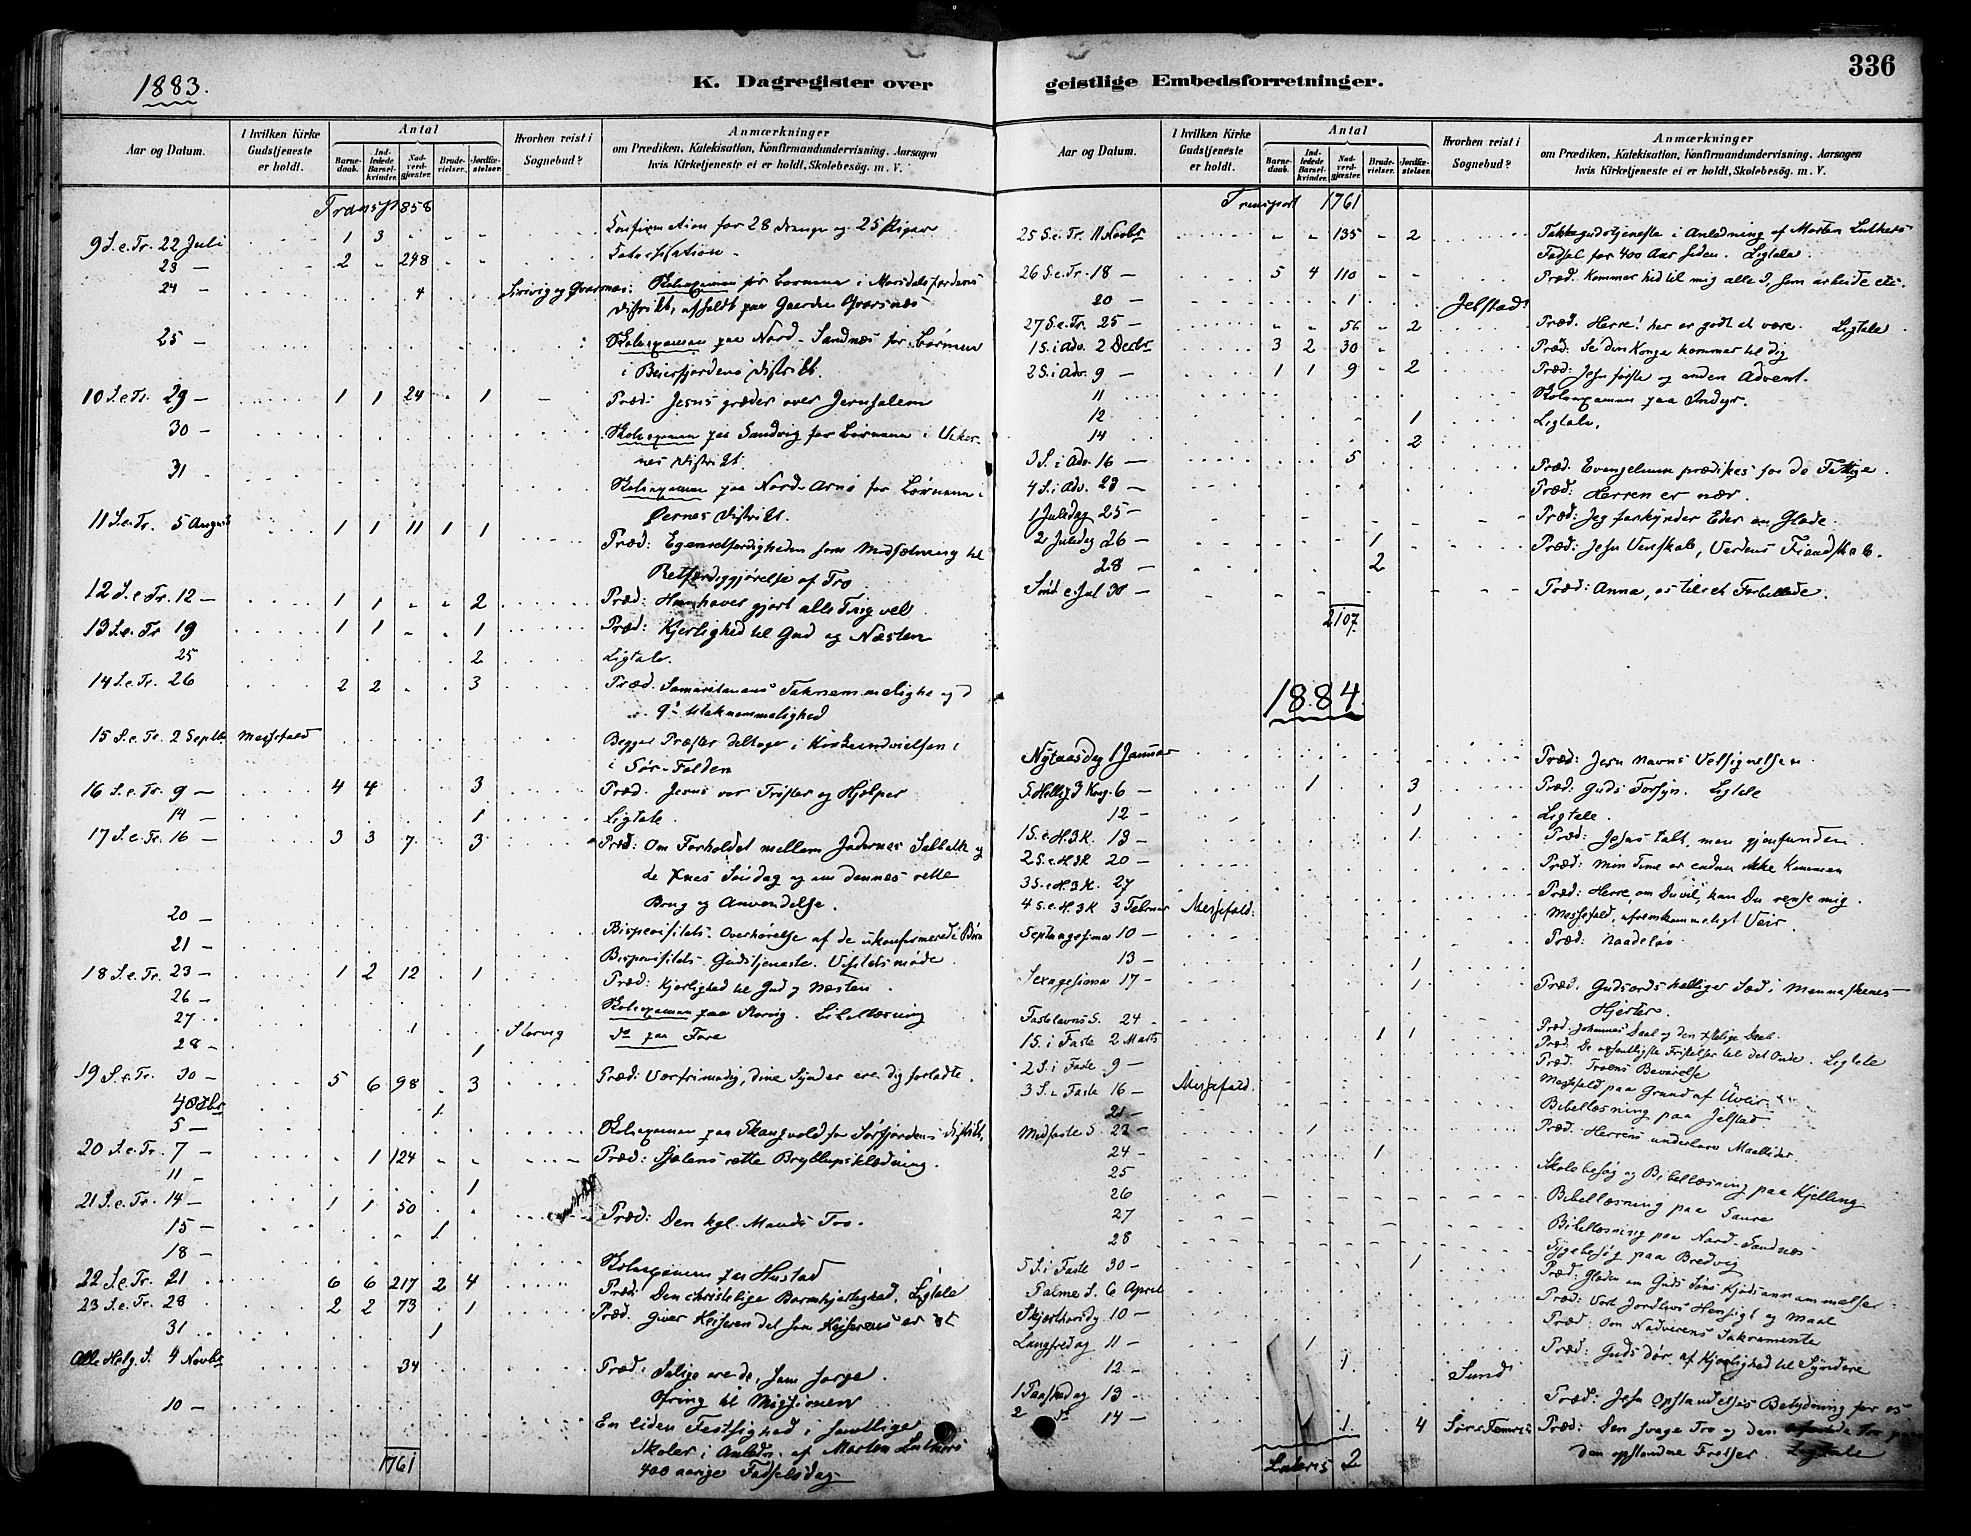 1883.
K. Dagregister over
Aar og Datum.
I hvilken Kirke Gudstjeneste er holdt.
Antal
Barnedaab.
Indledede Barselkvinder.
Nadverdgjæster.
Brudevielser.
Jordfæstelser.
Hvorhen reist i Sognebud?
Anmærkninger
om Prædiken, Katekisation, Konfirmandundervisning. Aarsagen
hvis Kirketjeneste ei er holdt, Skolebesøg. m. V.
Transp. 858
9 S. e. Tr. 22 Juli 1 3 Confirmation for 28 Drenge og 25 Piger
23 — 2 248
24 — 4 Skoleexamen for Børnene i Morsdalsfjordens
Distrikt, afholdt paa Gaarden
25 — Skoleexamen paa Nord-Sandnæs for Børnene
i Beierfjordens Distrikt.
10 S. e. Tr. 29 — 1 1 24 1 Præd: Jesus græder over Jerusalem
30 — Skoleexamen paa Sandvig for Børnene i
nes Distrikt.
31 — Skoleexamen paa Nord-Arnø for Børnene i
Øernes Distrikt.
11 S. e. Tr. 5 August 1 1 11 1 1 Præd: Egenretfærdigheden som Modsætning til
Retfærdiggjørelse af Tro
12 S. e. Tr. 12 — 1 1 2 Præd: Han haver gjort alle Ting vel
13 S. e. Tr 19 1 1 1 Præd: Kjerlighed til Gud og Næsten
25 2 Ligtale.
14 S. e. Tr. 26 2 2 3 Præd. Samaritanens Taknemmelighed
9s Utaknemmelighed
15 S. e. Tr. 2 Septb. Messefald Begge Præster deltager i Kirkeindvielsen i
Sør-Folden
16 S. e. Tr. 9 — 4 4 3 Præd. Jesus vor Trøster og Hjælper
14 — 1 Ligtale.
17 S. e. Tr. 16 — 3 3 7 3 Præd: Om Forholdet mellem Jødernes Sabbath og
de Xnes Søndag og om dennes rette
Brug og Anvendelse.
20 — Bispevisitats. Overhørelse af de ukonfirmerede Børn
21 — Bispevisitats. Gudstjeneste. Visitatsmøde.
18 S. e. Tr. 23 — 1 2 12 1 Præd: Kjerlighed til Gud og Næsten
26 — Skoleexamen paa Storvig. Bibellæsning
27 1 Storvig do paa Fore
28 — 1
19 S. e. Tr. 30 — 5 6 98 3 Præd: Vær frimodig, dine Synder ere dig forladte.
4 Octbr 1
5 — Skoleexamen paa Skaugvold for Sørfjordens Distrikt.
20 S. e. Tr. 7 — 1 124 Præd: Sjælens rette Bryllupsklædning.
11 — 1
21 S. e. Tr. 14 — 1 1 50 Præd: Den kgl. Mands Tro.
15 — 1
18 — Skoleexamen paa Hustad
22 S. e. Tr. 21 6 6 217 2 4 Præd: Den christelige Barmhjertighed. Ligtale
23 S. e. Tr. 28 2 2 73 1 Præd. Giver Keiseren det som Keiserens er &c
31 1
Alle Helg. S. 4 Novbr 34 Præd: Salige ere de, som sørge.
Ofring til Missionen
10 — En liden Festlighed i samtlige
Skoler i Anledn. af Morten Luthers
400 aarige Fødselsdag
1761
geistlige Embedsforretninger.
336
Aar og Datum.
I hvilken Kirke Gudstjeneste er holdt.
Antal
Barnedaab.
Indledede Barselkvinder.
Nadverdgjæster.
Brudevielser.
Jordfæstelser.
Hvorhen reist i Sognebud?
Anmærkninger
om Prædiken, Katekisation, Konfirmandundervisning. Aarsagen
hvis Kirketjeneste ei er holdt, Skolebesøg. m. V.
Transport 1761
25 S. e. Tr. 11 Novbr 135 2 Takkegudstjeneste i Anledning af Morten Luthers
Fødsel for 400 Aar siden. Ligtale.
26 S. e. Tr. 18 — 5 4 110 Præd. Kommer hid til mig alle I, som arbeide etc.
20 — 1 Jelstad
27 S. e. Tr. 25 — 56 2 Præd. Herre! her er godt at være. Ligtale
1 S. i Adv. 2 Decbr 3 2 30 Præd: Se din Konge kommer til dig
2 S. i Adv. 9 — 1 1 9 2 Præd: Jesu første og anden Advent.
11 — Skoleexamen paa Indyr.
12 1 Ligtale.
14 — 2
3 S. i Adv. 16 — 5 Præd. Evangelium prædikes for de Fattige.
4 S. i Adv. 23 — Præd: Herren er nær.
1 Juledag 25 — Præd: Jeg forkynder Eder en Glæde.
2 Juledag 26 — 1 Præd: Jesu Venskab, Verdens Fiendskab.
28 — 2
Sønd e. Jul 30 — Præd: Anna, os til et Forbillede.
2107
1884.
Nytaarsdag 1 Januar Præd: Jesu Navns Velsignelsen
S. Hellig 3 Kong. 6 — 1 3 Præd: Guds Forsyn. Ligtale
12 — 1 Ligtale.
1 S. e. H. 3 K. 13 — 1 Præd: Jesus tabt, men gjenfunden
2 S. e. H. 3 K 20 — Præd: Min Time er endnu ikke kommen
3 S. e. H. 3 K. 27 Præd: Herre, om Du vil, kan Du rense mig.
4 S. e. H. 3 K 3 Februar Messefald. Messefald, ufremkommeligt Veir.
Septuagesima 10 — Præd: Naadeløn
13 — 1
Sexagesima 17 — 1 Præd. Gudsords hellige Sæd i Menneskenes
Hjerter.
Fastelavns S. 24 Præd. Johannes Daab og den xstelige Daab
1 S. i Faste 2 Marts 1 1 Præd. De Fristelser til det Onde. Ligtale
2 S. i Faste 9 — Præd. Troens Bevarelse
3 S. i Faste 16 — Messefald. Messefald paa Grund af Uveir.
21 — Bibellæsning paa Jelstad
Midfaste S. 23 — 1 Præd. Herrens underbare Maaltider.
24 — 1
25 Skolebesøg og Bibellæsning paa Kjelling
26 Bibellæsning paa Saure
27 Bibellæsning paa Nord-Sandnæs
28 Sygebesøg paa Bredvig
5 S. i Faste 30 — 1 Præd: Glæden om Guds Søns Kjødsannammelse
Palme S. 6 April Præd: Vort Jordlivs Hensigt og Maal
Skjærthorsdg 10 — Præd: Om Nadverens Sakramente
Langfredag 11 — 1 Præd: Guds dør af Kjærlighed til Syndere
12 — 1 Sund
1 Paaskedag 13 Præd: Jesu Opstandelses Betydning for os
2 do 14 — 1 4 Præd: Den svage Tro og den
den opstandne Frelser Ligtale
Lateris 2